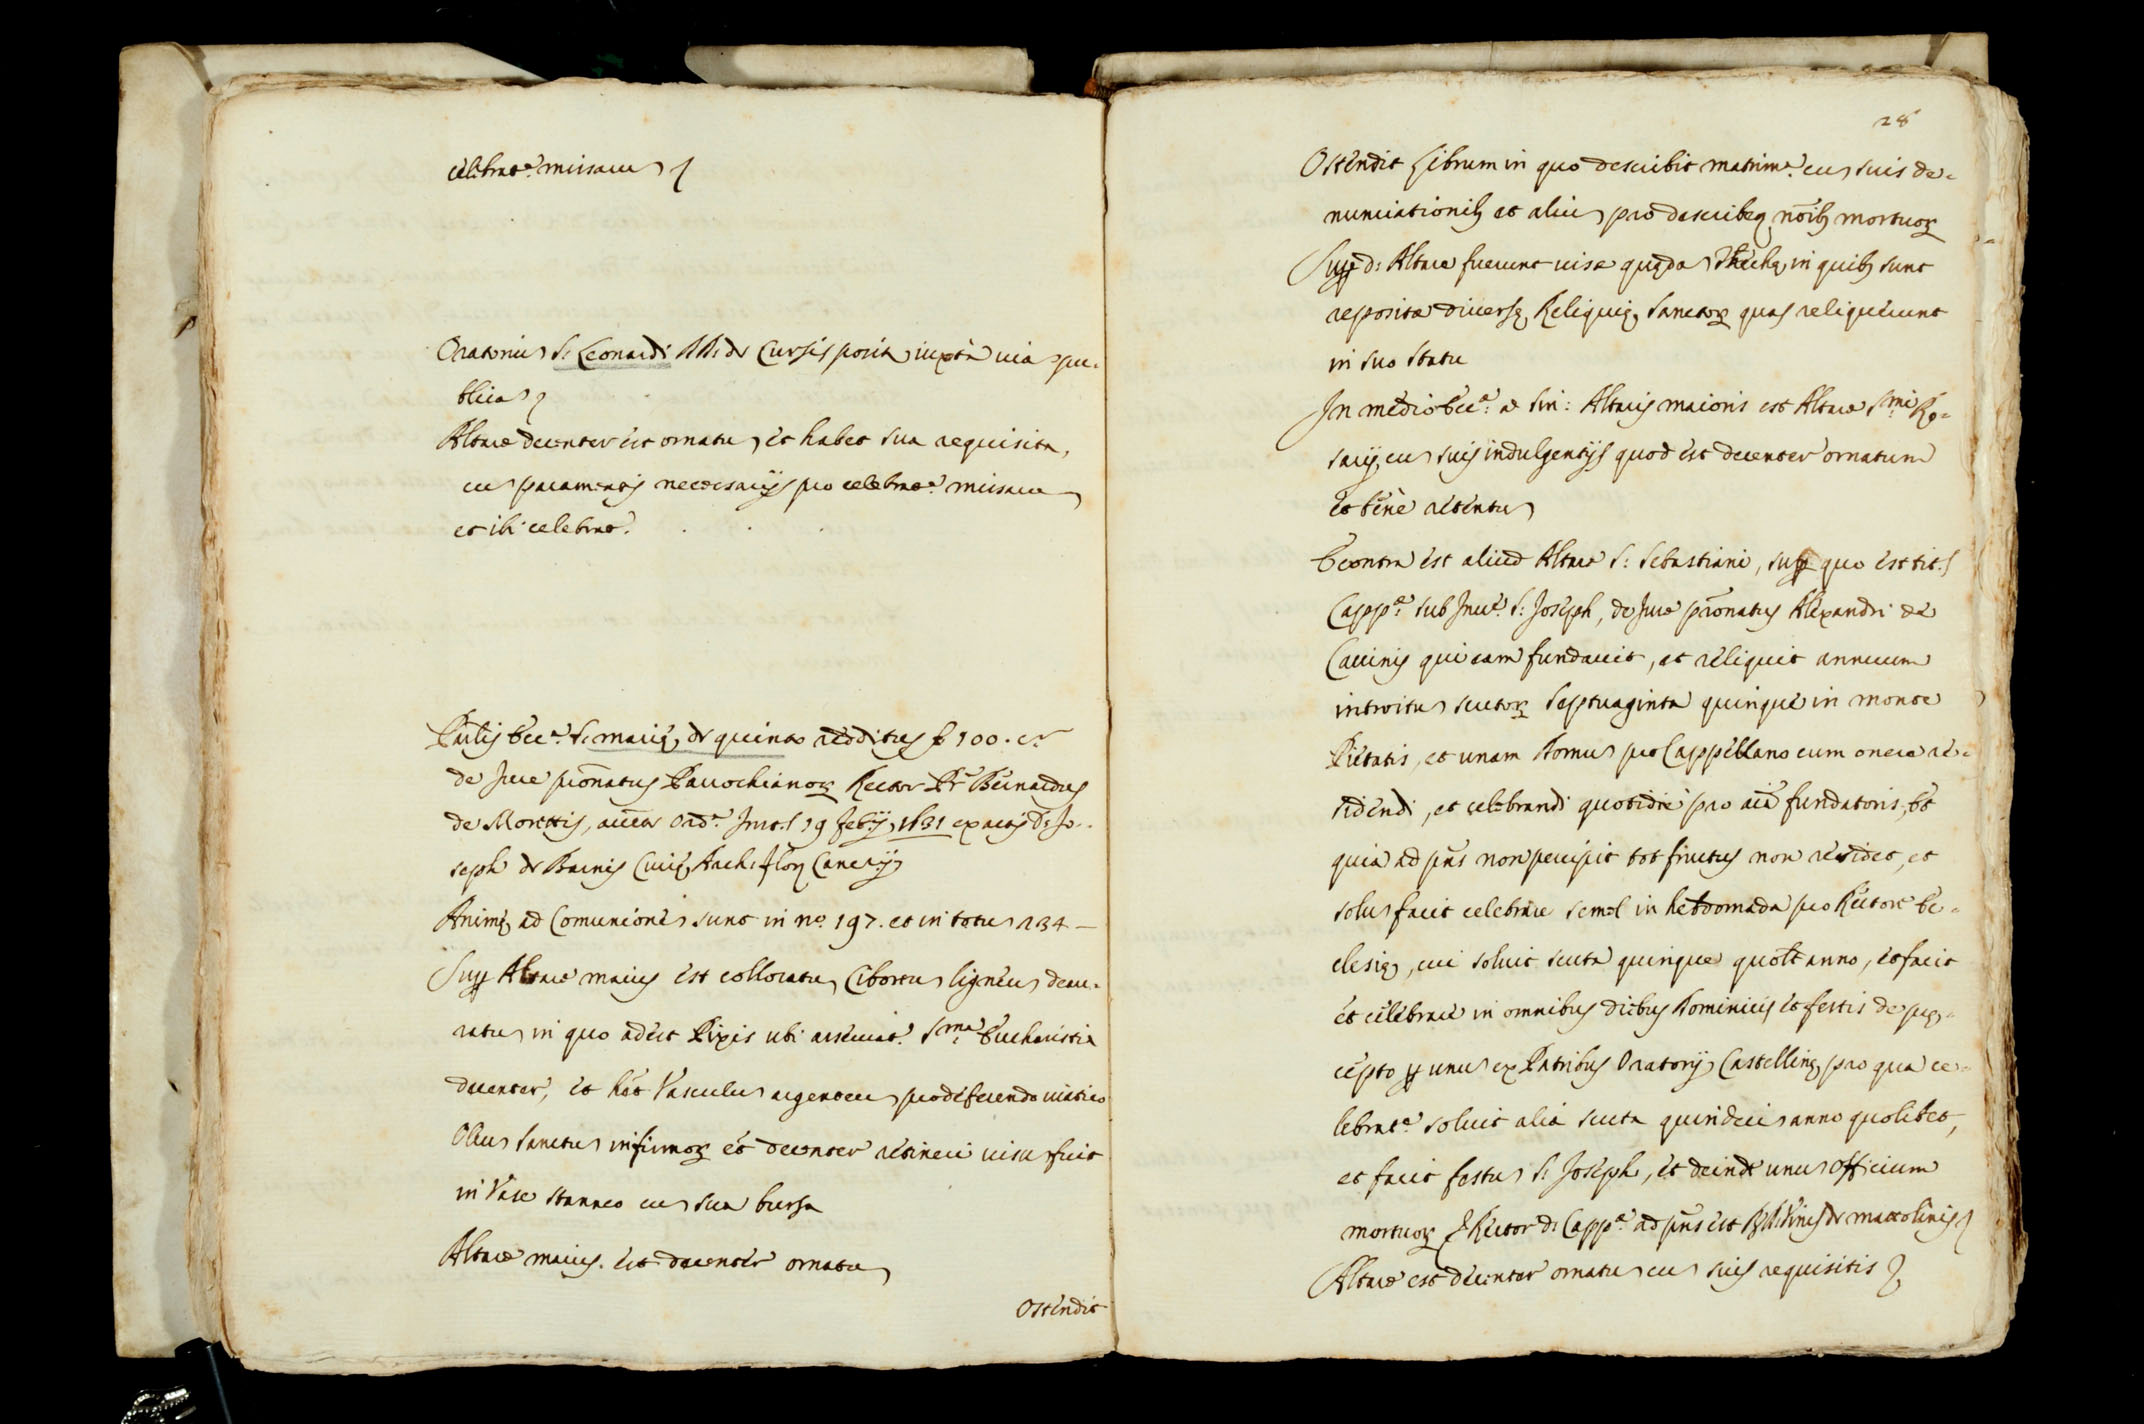 celebrat.e missam
Oratoriũ S. Leonardi DD: de Cursis posit. iuxtà uiã pu-
blicã
Altare decenter est ornatũ, et habet sua requisita,
cũ paramentis necessarijs pro celebrat.e missarũ
et ibi celebrat.r
Parlis Ecc.a S. marię de quinto redditus £ 100. c.a
de Jure prõnatus Parochianorũ Rector Pr Bernardus
de Morettis, auctte Ord.a Inst.s 19 febrij 1631 ex actis D: Jo-
seph de Barnis Curię Arch: flor: Cancrij
Animę ad Comunionẽ sunt in no. 197. et in totũ 234 —
Supp Altare maius est collocatũ Ciboriũ ligneũ deau-
ratũ in quo adest Pixis ubi asseruat.r S.ma Eucharistia
decenter, et hẽt Vasculũ argenteũ pro deferendo uiatico
Oleũ Sanctũ infirmorũ et decenter retineri uisũ fuit
in Vase stanneo cũ sua bursa
Altare maius. est decenter ornatũ
Ostendit
28
Ostendit Librum in quo describit matrim.a cũ suis de-
nunciationibꝫ et aliũ pro describeę noĩbꝫ mortuorũ
Supp d: Altare fuerunt uisæ quędã Thechę in quibꝫ sunt
repositæ diuersę Reliquię Sanctorũ quas reliquerunt
in suo statu
In medio Ecc.æ a sin: Altaris maioris est Altare S.mi Ro-
sarij cũ suis indulgentijs quod est decenter ornatum
et benè retentũ
Econtra est aliud Altare S: Sebastiani, supp quo est tit.s
Capp.æ sub Inuc.e S: Joseph, de Jure prõnatus Alexandri de
Cauinis qui eam fundauit, et reliquit annuum
introitũ scutorũ septuaginta quinque in monte
Pietatis, et unam Domũ pro Cappellano cum onere re-
sidendi, et celebrandi quotidiè pro aĩa fundatoris, Et
quia ad pñs non percipit tot fructus non residet, et
solũ facit celebrare semel in hebdomada pro Rectore Ec-
clesię, cui soluit scuta quinque quolt anno, et facit
et celebrare in omnibus diebus Dominicis et festis de prę-
cepto p unũ ex Patribus Oratorij Castellinę, pro qua ce-
lebrat.e soluit alia scuta quindecĩ anno quolibet,
et facit festũ S: Joseph, et deinde unũ Officium
mortuorũ Rector d: Capp.æ ad pñs est de mattolinis
Altare est decenter ornatũ cũ suis requisitis